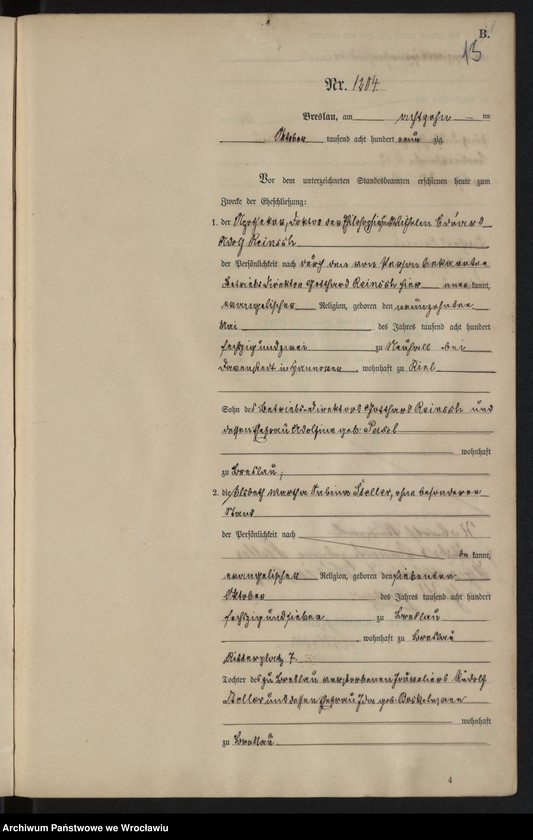 B.
13
Nr. 1204
Breslau, am achtzehn im
Oktober tausend acht hundert neun zig
Vor dem unterzeichneten Standesbeamten erschienen heute zum
Zwecke der Eheschließung:
1. der Apotheker, Doktor der Philosophie Wilhelm Eduard
Adolf Reinsch
der Persönlichkeit nach durch den von Person bekannten
Betriebsdirektor Gotthard Reinsch hier anerkannt,
evangelischer Religion, geboren den neunzehnten
Mai des Jahres tausend acht hundert
sechzig und zwei zu Neuhall bei
in Hannover, wohnhaft zu Kiel
Sohn des Betriebs-Direktors Gotthard Reinsch und
dessen Ehefrau Adolfine geb:
wohnhaft
zu Breslau;
2. die Elsbeth Martha Sabina Steller, ohne besonderen
Stand
der Persönlichkeit nach
be kannt,
evangelischer Religion, geboren den siebenten
Oktober des Jahres tausend acht hundert
sechzig und sieben zu Breslau
, wohnhaft zu Breslau
Ritterplatz 7.
Tochter des zu Breslau verstorbenen Juweliers Rudolf
Steller und dessen Ehefrau Ida geb:
wohnhaft
zu Breslau
4
Archiwum Państwowe we Wrocławiu